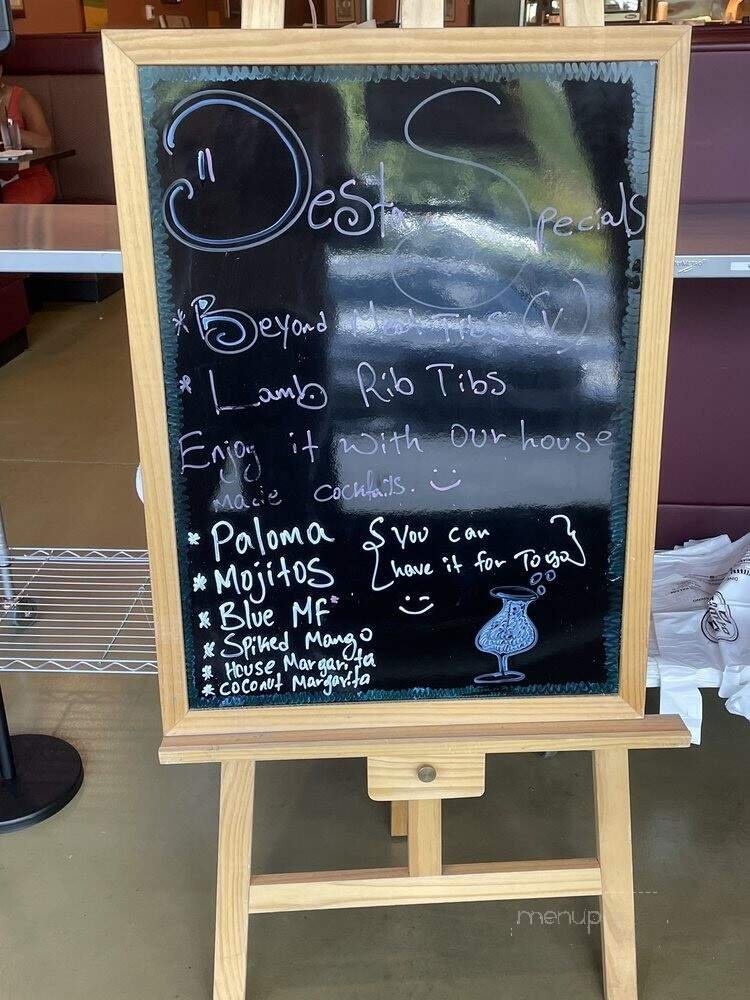 "Desta Specials
* Beyond Meat Tibs (V)
* Lamb Rib Tibs
Enjoy it with our house
made cocktails.
* Paloma
* Mojitos
* Blue MF*
* Spiked Mango
* House Margarita
* Coconut Margarita
{ You can
have it for Togo }
menupix